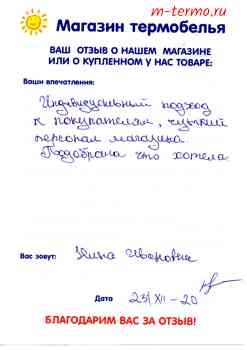 m-termo.ru
Магазин термобелья
ВАШ ОТЗЫВ О НАШЕМ МАГАЗИНЕ
ИЛИ О КУПЛЕННОМ У НАС ТОВАРЕ:
Ваши впечатления:
Индивидуальный подход
к покупателям, чуткий
персонал магазина.
Подобрала что хотела.
Вас зовут: Нина Ивановна
Дата 23/XII-20
БЛАГОДАРИМ ВАС ЗА ОТЗЫВ!